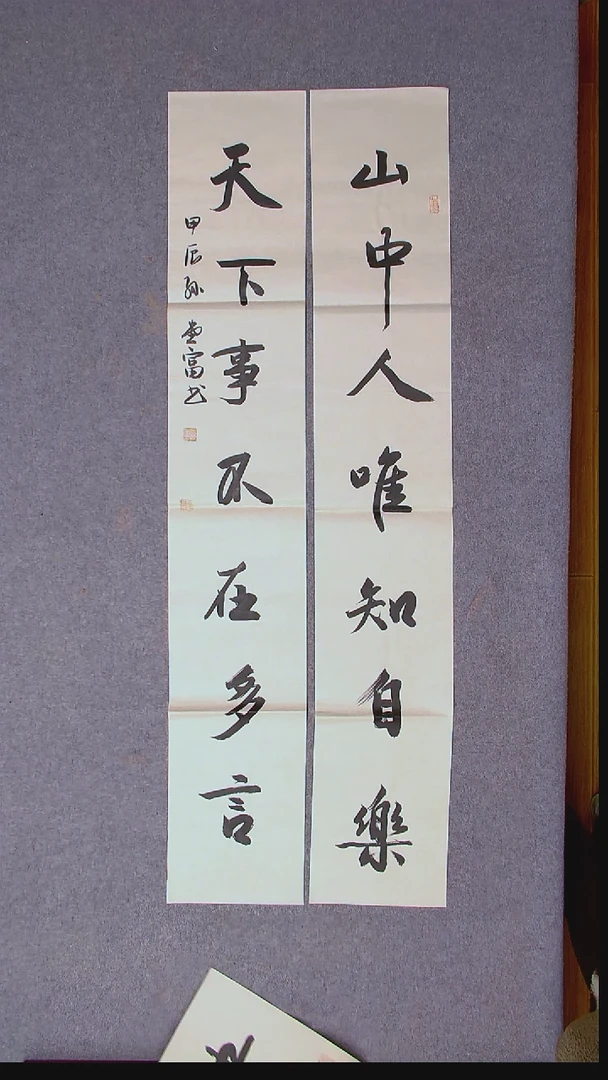 山中人唯知自樂
天下事不在多言
甲辰孫
富书